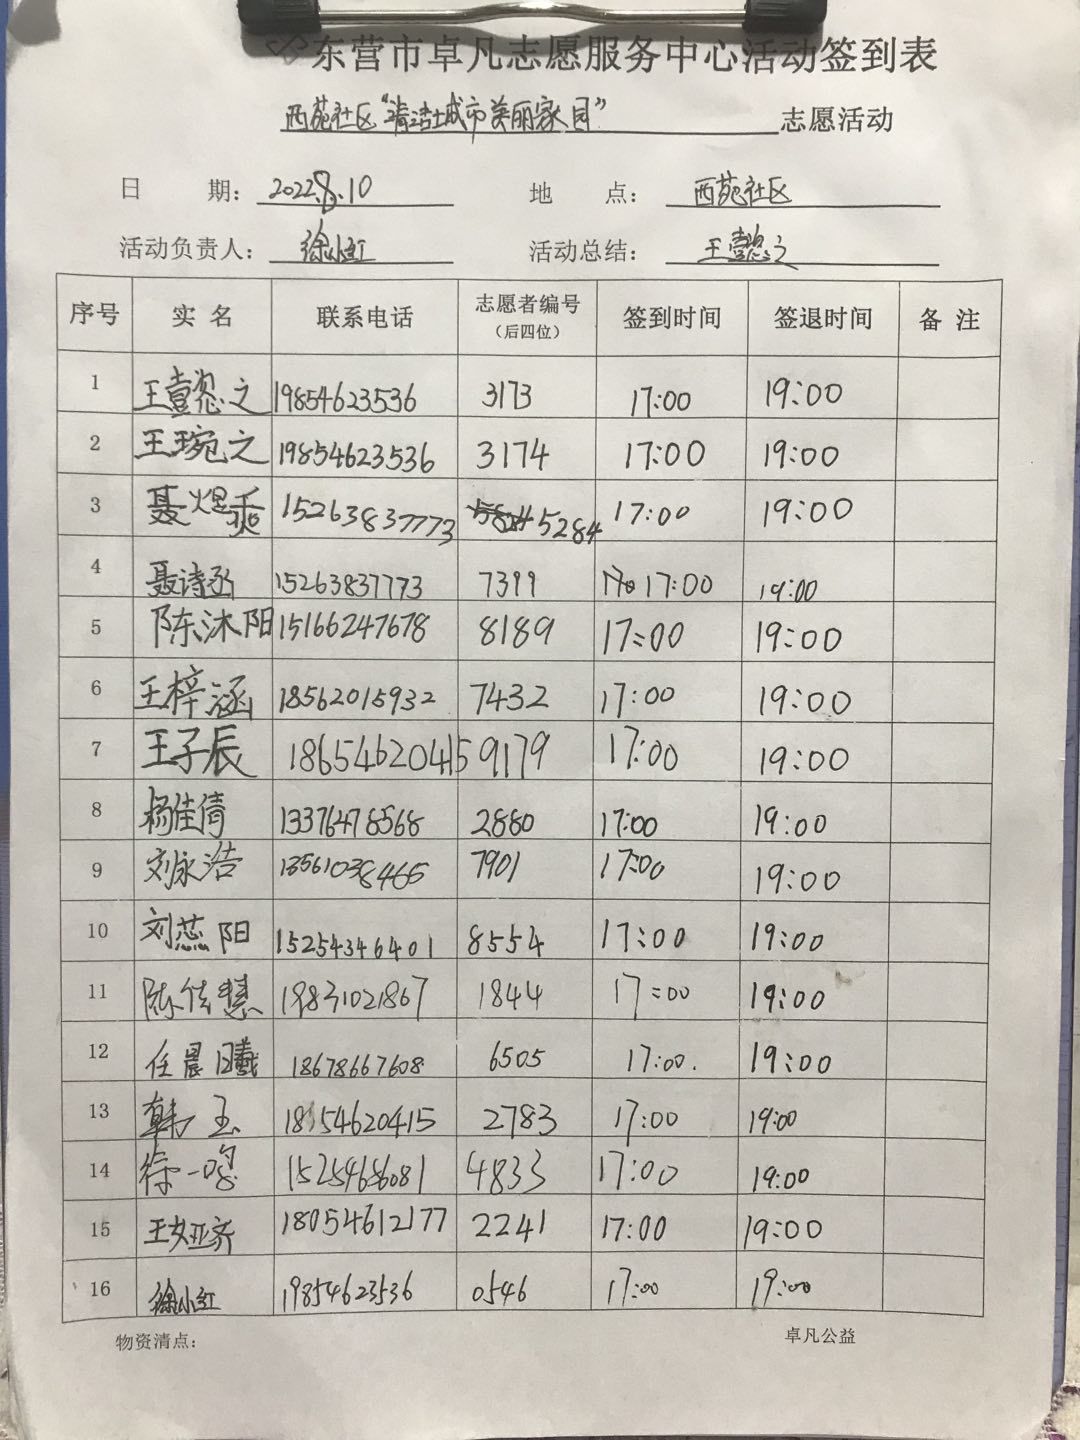 东营市卓凡志愿服务中心活动签到表
西苑社区“清洁城市美丽家园” 志愿活动
日 期: 2022.8.10 地 点: 西苑社区
活动负责人: 徐小红 活动总结: 王懿之
序号 实 名 联系电话 志愿者编号 (后四位) 签到时间 签退时间 备 注
1 王懿之 19854623536 3173 17:00 19:00
2 王琬之 19854623536 3174 17:00 19:00
3 聂煜 15263837773 5284 17:00 19:00
4 聂诗丞 15263837773 7399 17:00 19:00
5 陈沐阳 15166247678 8189 17:00 19:00
6 王梓涵 18562015932 7432 17:00 19:00
7 王子辰 18654620415 9179 17:00 19:00
8 杨佳倩 13376478568 2880 17:00 19:00
9 刘永浩 13561038465 7901 17:00 19:00
10 刘蕊阳 15254346401 8554 17:00 19:00
11 陈佳慧 19831021867 1844 17:00 19:00
12 任晨曦 18678667608 6505 17:00. 19:00
13 韩玉 2783 17:00 19:00
14 徐一鸣 15254656081 4833 17:00 19:00
15 王 18054612177 2241 17:00 19:00
16 徐小红 19854623536 0546 17:00 19:00
物资清点: 卓凡公益